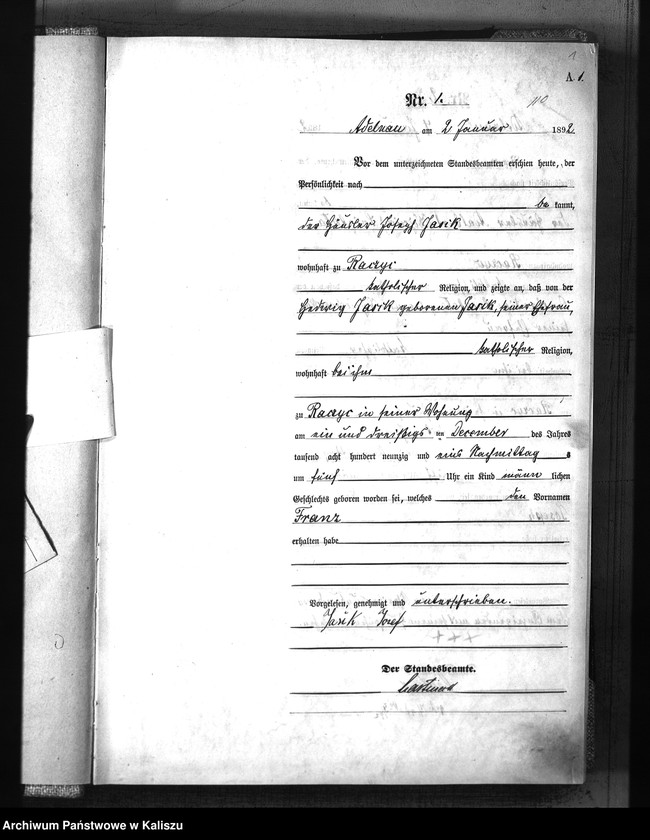 1
A 1.
Nr. 1.
Adelnau am 2 Januar 1892.
Vor dem unterzeichneten Standesbeamten erschien heute, der
Persönlichkeit nach
be kannt,
der Häusler Joseph Jasik
wohnhaft zu Raczyc
katholischer Religion, und zeigte an, daß von der
Hedwig Jasik geborenen Jasik, seiner Ehefrau,
katholischer Religion,
wohnhaft bei ihm
zu Raczyc in seiner Wohnung
am ein und dreißigsten December des Jahres
tausend acht hundert neunzig und eins Nachmittag s
um fünf Uhr ein Kind männ lichen
Geschlechts geboren worden sei, welches den Vornamen
Franz
erhalten habe
Vorgelesen, genehmigt und unterschrieben.
Jasik Josef
+++
Der Standesbeamte.
Archiwum Państwowe w Kaliszu